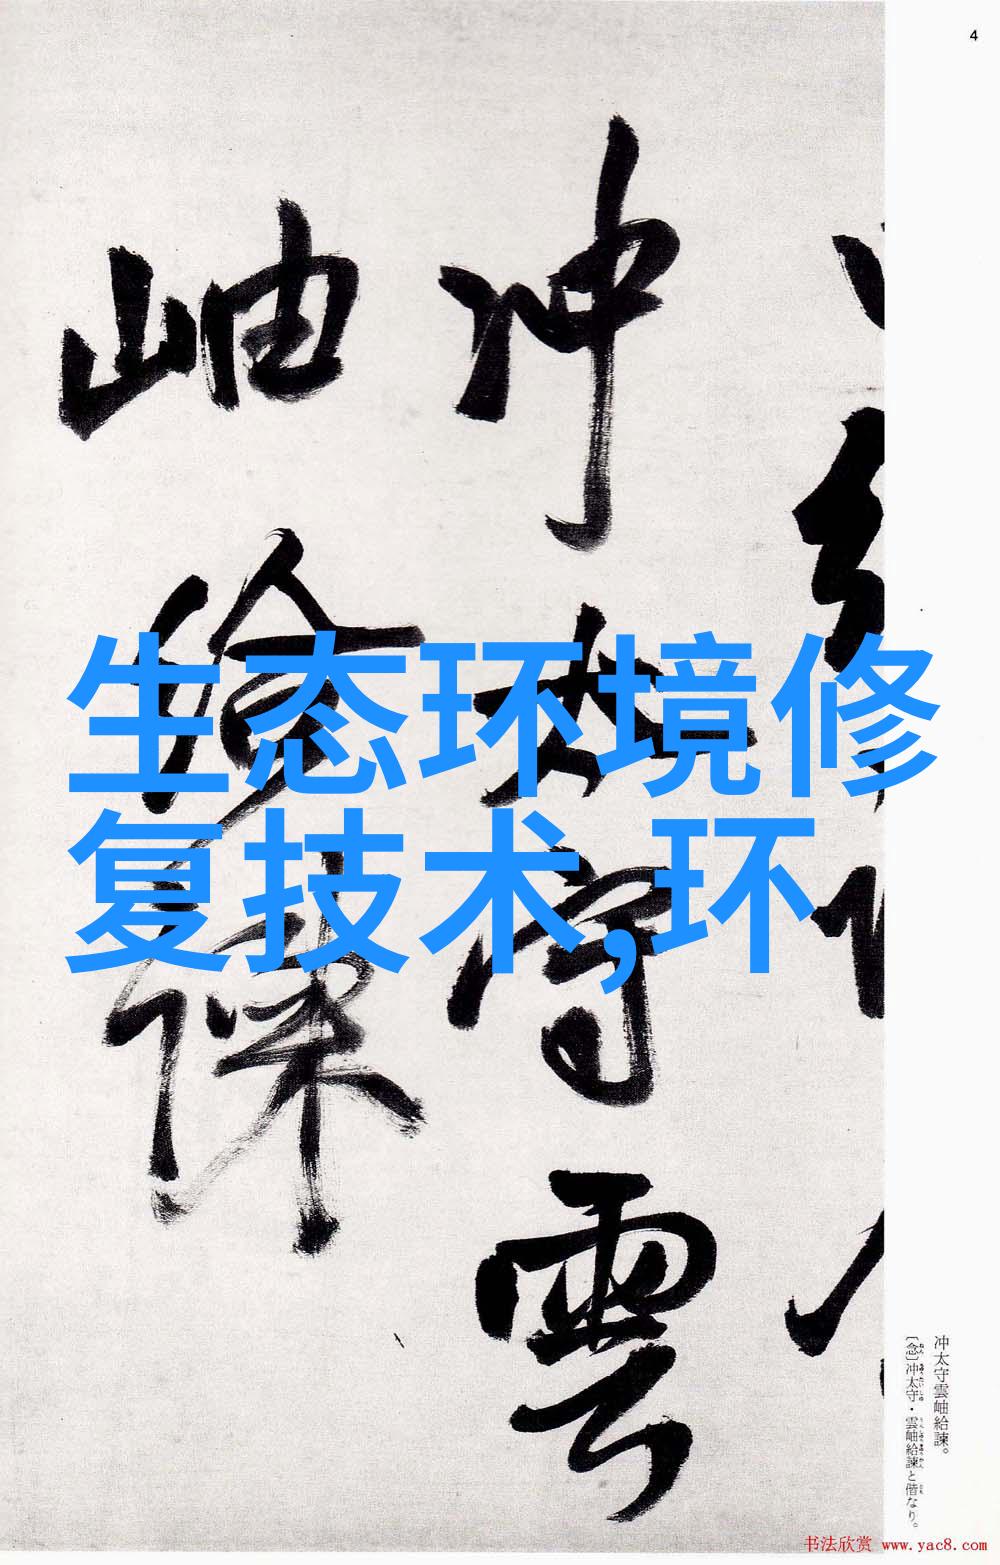 4
冲太守雲
岫給諫
生态环境修
复技术,环
冲太守雲岫給諫。
〔念〕冲太守・雲岫給諫と偕なり。
书法欣赏 www.yac8.com